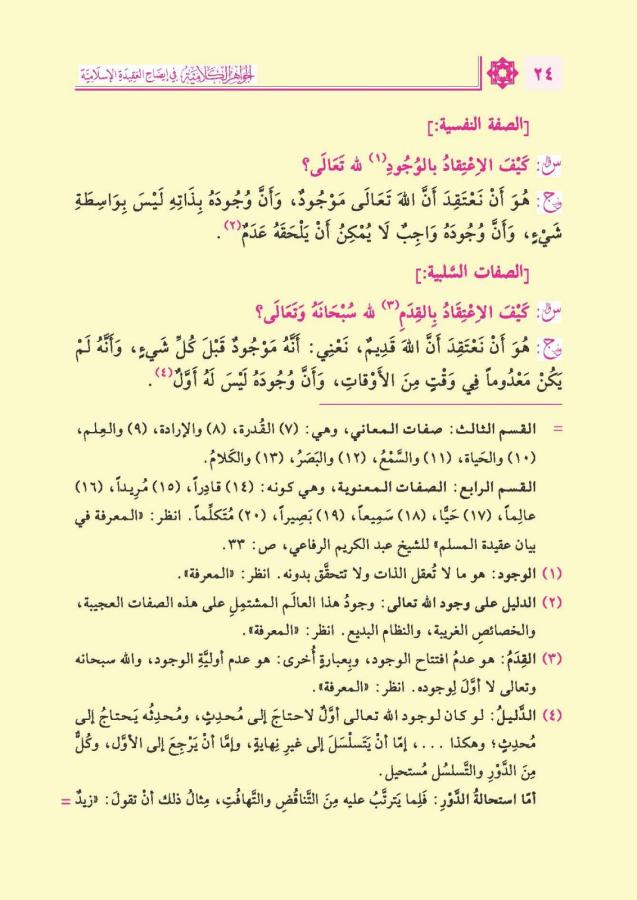 ٢٤
الجواهر الكلامية في إيضاح العقيدة الإسلامية
[الصفة النفسية:]
س: كَيْفَ الاِعْتِقادُ بالوُجُودِ(١) لله تَعَالَى؟
ج: هُوَ أَنْ نَعْتَقِدَ أَنَّ اللهَ تَعَالَى مَوْجُودٌ، وَأَنَّ وُجُودَهُ بِذَاتِهِ لَيْسَ بِوَاسِطَةِ
شَيْءٍ، وَأَنَّ وُجُودَهُ وَاجِبٌ لَا يُمْكِنُ أَنْ يَلْحَقَهُ عَدَمٌ(٢).
[الصفات السَّلبية:]
س: كَيْفَ الاِعْتِقَادُ بِالقِدَمِ(٣) لله سُبْحَانَهُ وَتَعَالَى؟
ج: هُوَ أَنْ نَعْتَقِدَ أَنَّ اللهَ قَدِيمٌ، نَعْنِي: أَنَّهُ مَوْجُودٌ قَبْلَ كُلِّ شَيءٍ، وَأَنَّهُ لَمْ
يَكُنْ مَعْدُوماً فِي وَقْتٍ مِنَ الأَوْقاتِ، وَأَنَّ وُجُودَهُ لَيْسَ لَهُ أَوَّلٌ(٤).
= القسم الثالث: صفات المعاني، وهي: (٧) القُدرة، (٨) والإرادة، (٩) والعِلم،
(١٠) والحَياة، (١١) والسَّمْعُ، (١٢) والبَصَرُ، (١٣) والكَلامُ.
القسم الرابع: الصفات المعنوية، وهي كونه: (١٤) قادراً، (١٥) مُرِيداً، (١٦)
عالِماً، (١٧) حَيًّا، (١٨) سَمِيعاً، (١٩) بَصِيراً، (٢٠) مُتَكلِّماً. انظر: «المعرفة في
بيان عقيدة المسلم» للشيخ عبد الكريم الرفاعي، ص: ٣٣.
(١) الوجود: هو ما لا تُعقل الذات ولا تتحقّق بدونه. انظر: «المعرفة».
(٢) الدليل على وجود الله تعالى: وجودُ هذا العالَم المشتمِل على هذه الصفات العجيبة،
والخصائص الغريبة، والنظام البديع. انظر: «المعرفة».
(٣) القِدَمُ: هو عدمُ افتتاح الوجود، وبِعبارةٍ أُخرى: هو عدم أوليَّةِ الوجود، والله سبحانه
وتعالى لا أوَّلَ لِوجوده. انظر: «المعرفة».
(٤) الدَّليلُ: لو كان لوجود الله تعالى أوَّلٌ لاحتاجَ إلى مُحدِثٍ، ومُحدِثُه يَحتاجُ إلى
مُحدِثٍ؛ وهكذا ...، إمّا أنْ يَتَسلْسَلَ إلى غيرِ نِهايةٍ، وإمّا أنْ يَرْجِعَ إلى الأوَّل، وكُلٌّ
مِنَ الدَّوْرِ والتَّسلسُل مُستحيل.
أمّا استحالةُ الدَّوْرِ: فَلِما يَترتَّبُ عليه مِنَ التَّناقُضِ والتَّهافُتِ، مِثالُ ذلك أنْ تقولَ: «زيدٌ =